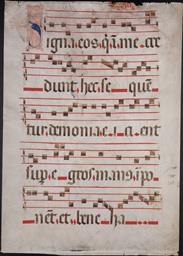 Signa eos q̃ i me cre
dunt hec se quẽ
tur demonia e i ci ent
sup e gros manꝯ ĩpo
nẽt et bene ha